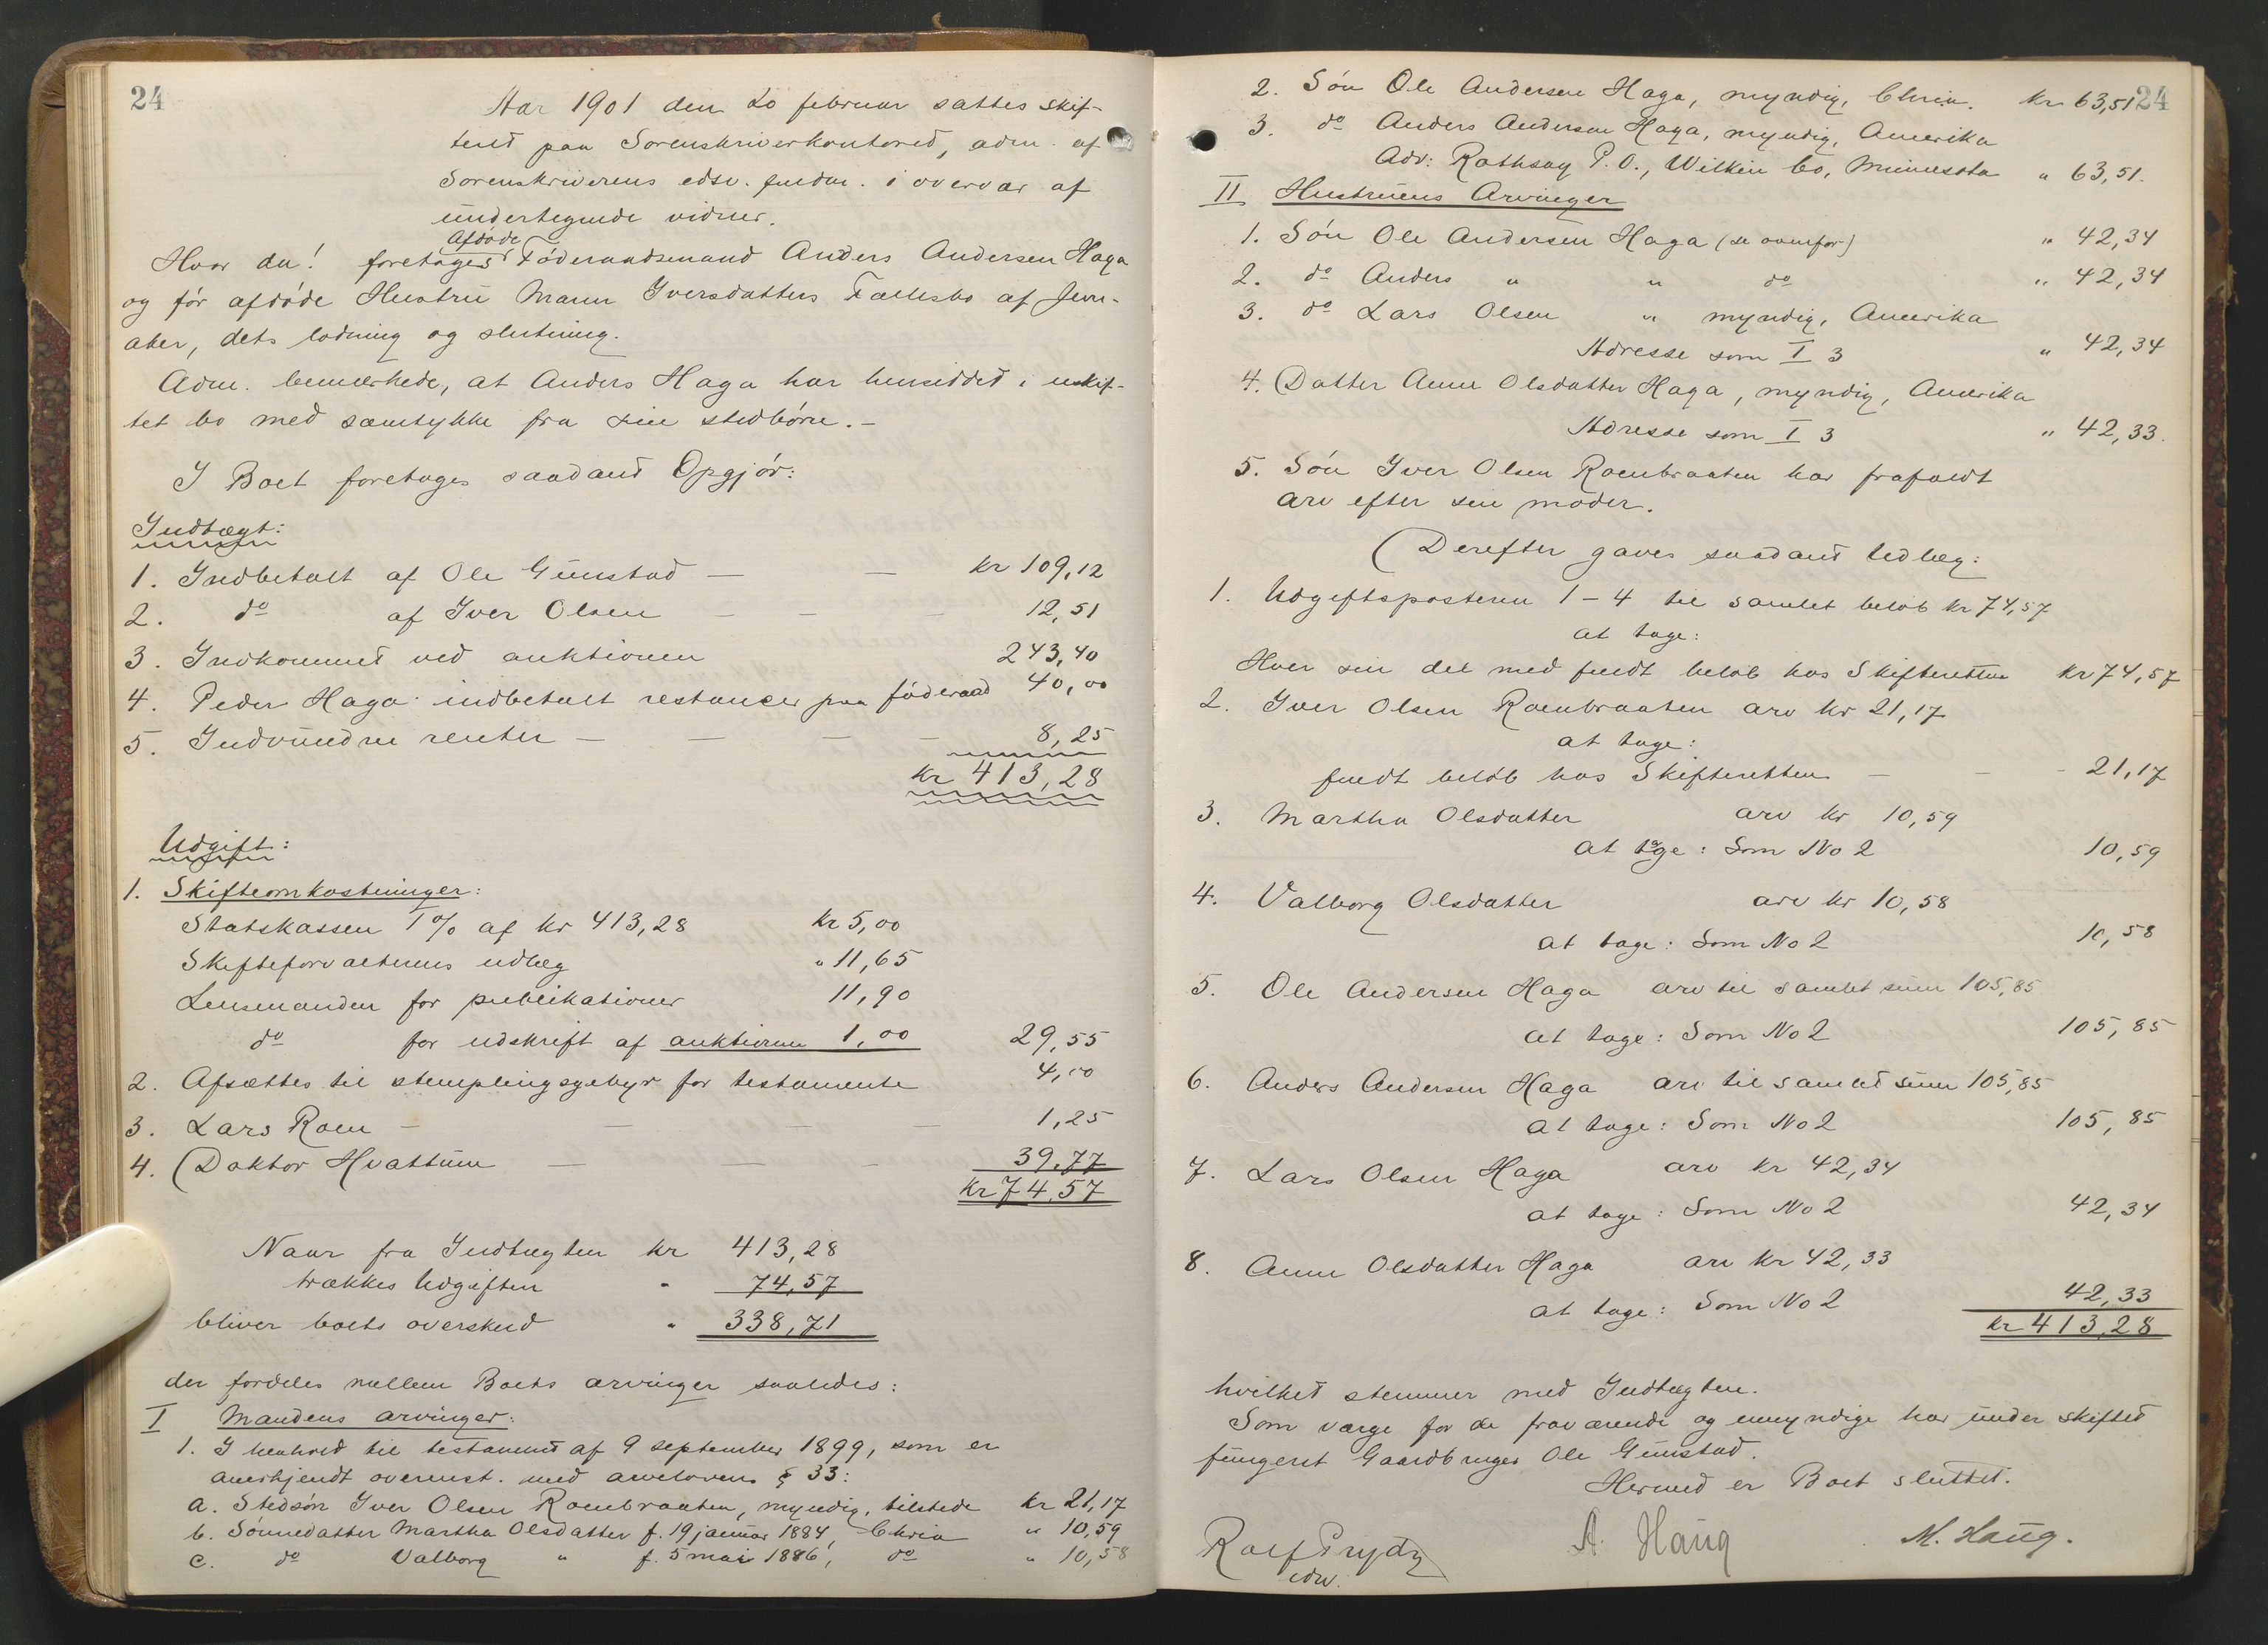 24
Aar 1901 den 20 februar sattes skif-
teret paa Sorenskriverkontoret, adm. af
Sorenskriverens edsv. fuldm. i overvær af
undertegnede vidner.
Afdøde
Hvor da! foretages Føderaadsmand Anders Andersen Haga
og før afdøde Hustru Maren Iversdatters Fællesbo af Jevn-
aker, dets lodning og slutning.
Adm. bemærkede, at Anders Haga har hensiddet i uskif-
tet bo med samtykke fra sine stedbørn. -
I Boet foretages saadant Opgjør:
Indtægt:
1. Indbetalt af Ole Gunstad — — kr 109,12
2. do af Iver Olsen — — — 12,51
3. Indkommet ved auktionen 243,40
4. Peder Haga indbetalt restancer paa føderaad 40,00
5. Indvundne renter — — — — 8,25
kr 413,28
Udgift:
1. Skifteomkostninger:
Statskassen 1% af kr 413,28 kr 5,00
Skifteforvalterens udlæg " 11,65
Lensmanden for publikationer 11,90
do for udskrift af auktionen 1,00 29,55
2. Afsættes til stemplingsgebyr for testamente 4,00
3. Lars Roen — — — — 1,25
4. Doktor Hvattum — — — 39,77
kr 74,57
Naar fra Indtægten kr 413,28
trækkes Udgiften " 74,57
bliver boets overskud " 338,71
der fordeles mellem Boets arvinger saaledes:
I Mandens arvinger:
1. I henhold til testament af 9 september 1899, som er
anerkjendt overenst. med arvelovens § 33:
a. Stedsøn Iver Olsen Roenbraaten, myndig, tilstede kr 21,17
b. Sønnedatter Martha Olsdatter f. 19 januar 1884, Chria " 10,59
c. do Valborg " f. 5 mai 1886, do " 10,58
24
2. Søn Ole Andersen Haga, myndig, Chria. kr 63,51
3. do Anders Andersen Haga, myndig, Amerika
Adr: Rothsay P.O., Wilkin Co, Minnesota " 63,51.
II Hustruens Arvinger
1. Søn Ole Andersen Haga (se ovenfor) " 42,34
2. do Anders " " do " 42,34
3. do Lars Olsen " myndig, Amerika
Adresse som I 3 " 42,34
4. Datter Anne Olsdatter Haga, myndig, Amerika
Adresse som I 3 " 42,33.
5. Søn Iver Olsen Roenbraaten har frafaldt
arv efter sin moder.
Derefter gaves saadant Udlæg:
1. Udgiftsposterne 1-4 til samlet beløb kr 74,57
at tage:
Hver sin del med fuldt beløb hos Skifteretten kr 74,57
2. Iver Olsen Roenbraaten arv kr 21,17
at tage:
fuldt beløb hos Skifteretten — — - 21,17
3. Martha Olsdatter arv kr 10,59
at tage: Som No 2 10,59
4. Valborg Olsdatter arv kr 10,58
at tage: Som No 2 10,58
5. Ole Andersen Haga arv til samlet sum 105,85
at tage: Som No 2 105,85
6. Anders Andersen Haga arv til samlet sum 105,85
at tage: Som No 2 105,85
7. Lars Olsen Haga arv kr 42,34
at tage: Som No 2 42,34
8. Anne Olsdatter Haga arv kr 42,33
at tage: Som No 2 42,33
kr 413,28
hvilket stemmer med Indtægten.
Som værge for de fraværende og umyndige har under skiftet
fungeret Gaardbruger Ole Gunstad.
Hermed er Boet sluttet.
Rolf Prydz A. Haug M. Haug.
edsv.